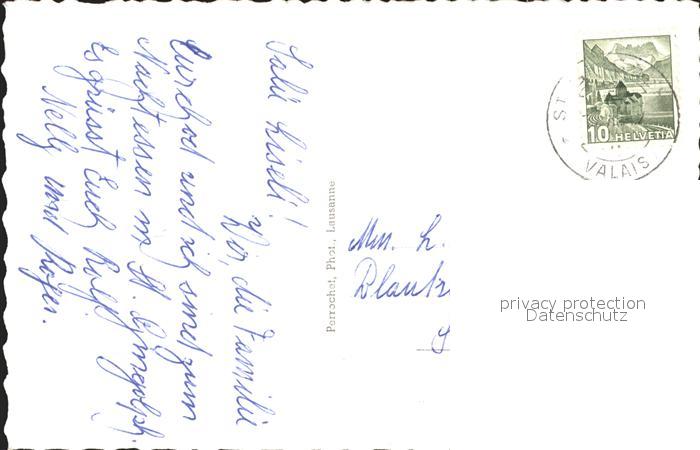 Salü Liseli!
Wir, die Familie
Curchod und ich sind zum
Nachtessen in St. Gingolph.
Es grüsst Euch Rolf,
Nelly und Roger.
Perrochet, Phot., Lausanne
L.
Blank
10 HELVETIA
ST
VALAIS
privacy protection
Datenschutz